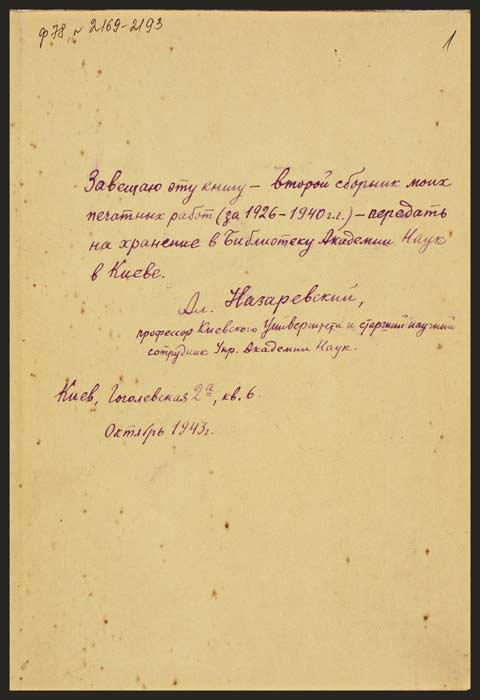 ф 78, № 2169-2193
1
Завещаю эту книгу – второй сборник моих
печатных работ (за 1926-1940 г.г.) – передать
на хранение в Библиотеку Академии Наук
в Киеве.
Ал. Назаревский,
профессор Киевского Университета и старший научный
сотрудник Укр. Академии Наук.
Киев, Гоголевская 2а, кв. 6.
Октябрь 1943 г.